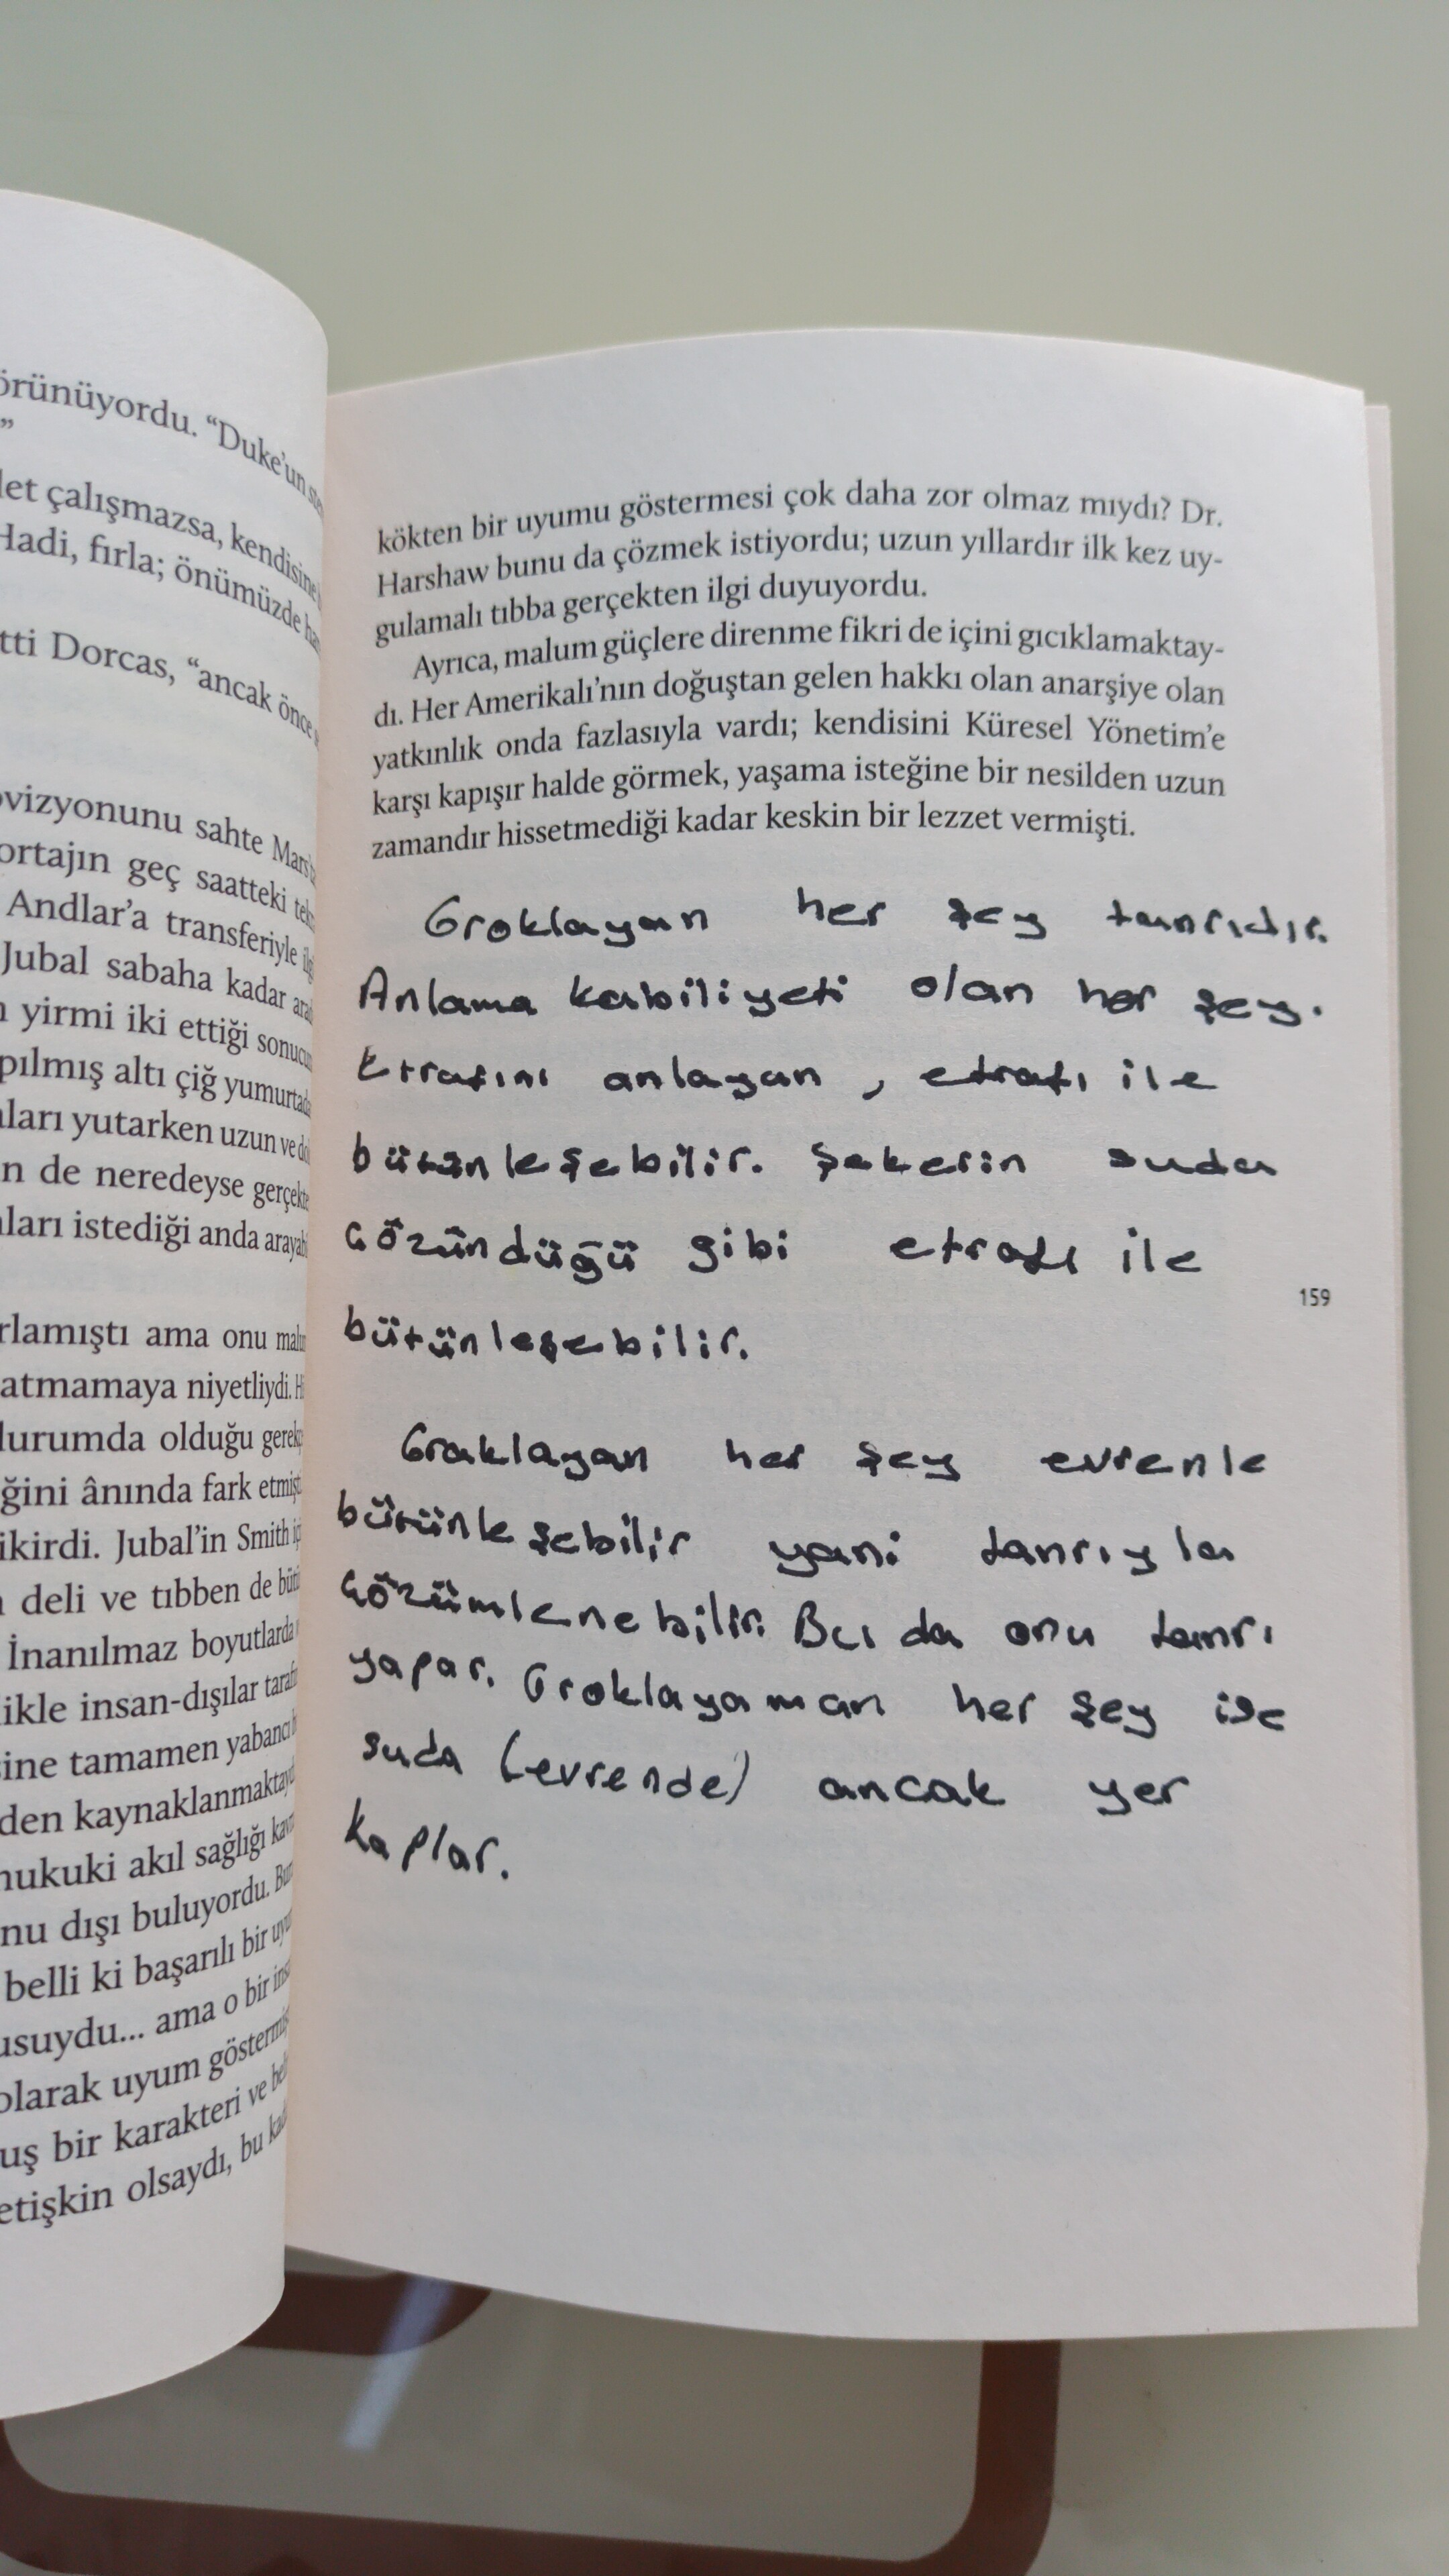 örünüyordu. “Duke’un
”
let çalışmazsa, kendisine
Hadi, fırla; önümüzde
tti Dorcas, “ancak önce
ovizyonunu sahte Mars’tan
ortajın geç saatteki
Andlar’a transferiyle
Jubal sabaha kadar
n yirmi iki ettiği
pılmış altı çiğ yumurtada
ları yutarken uzun ve
n de neredeyse
ları istediği anda
rlamıştı ama onu
atmamaya niyetliydi.
durumda olduğu
ğini ânında fark
ikirdi. Jubal’in Smith
deli ve tıbben de
İnanılmaz boyutlarda
ikle insan-dışılar
sine tamamen
den kaynaklanmaktaydı
hukuki akıl sağlığı
nu dışı buluyordu.
belli ki başarılı bir
usuydu... ama o bir
olarak uyum
uş bir karakteri ve
etişkin olsaydı, bu
kökten bir uyumu göstermesi çok daha zor olmaz mıydı? Dr.
Harshaw bunu da çözmek istiyordu; uzun yıllardır ilk kez uy-
gulamalı tıbba gerçekten ilgi duyuyordu.
Ayrıca, malum güçlere direnme fikri de içini gıcıklamaktay-
dı. Her Amerikalı’nın doğuştan gelen hakkı olan anarşiye olan
yatkınlık onda fazlasıyla vardı; kendisini Küresel Yönetim’e
karşı kapışır halde görmek, yaşama isteğine bir nesilden uzun
zamandır hissetmediği kadar keskin bir lezzet vermişti.
Groklayan her şey tanrıdır.
Anlama kabiliyeti olan her şey.
Etrafını anlayan, etrafı ile
bütünleşebilir. Şekerin suda
çözündüğü gibi etrafı ile
159
bütünleşebilir.
Groklayan her şey evrenle
bütünleşebilir yani tanrıyla
çözümlenebilir. Bu da onu tanrı
yapar. Groklayaman her şey ise
suda (evrende) ancak yer
kaplar.